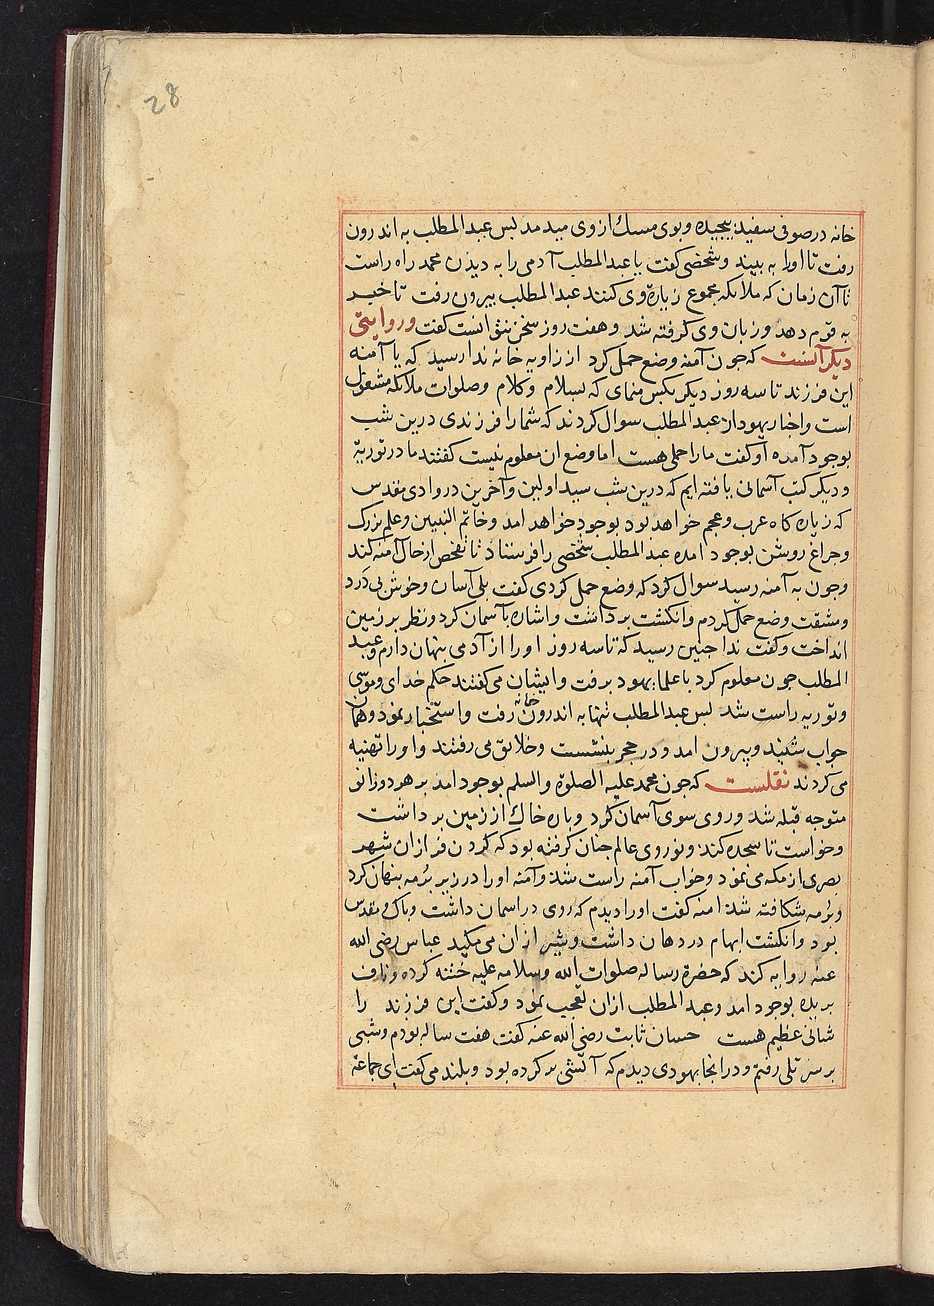 28
خانه در صوفی سفید پیچیده و بوی مسك از وی میدمد پس عبد المطلب به اندرون
رفت تا او را به بیند و شخصی کفت یا عبد المطلب آدمی را به دیدن محمد راه راست
تا آن زمان که ملایکه مجموع زیارة وی کنند عبد المطلب بیرون رفت تا خبر
به قوم دهد و زبان وی کرفته شد و هفت روز سخن نتوانست کفت و روایتی
دیکر آنست که جون آمنه وضع حمل کرد از زاویه خانه ندا رسید که یا آمنه
این فرزند تا سه روز دیکر بکس منمای که بسلام و کلام و صلوات ملایکه مشغول
است و احبار یهود از عبد المطلب سوال کردند که شما را فرزندی درین شب
بوجود آمده او کفت ما را حملی هست اما وضع ان معلوم نیست کفتند ما در توریة
و دیکر کتب آسمانی یافته ایم که درین شب سید اولین و آخرین در وادی مقدس
که زیارة کاه عرب و عجم خواهد بود بوجود خواهد امد و خاتم النبیین و علم بزرک
و جراغ روشن بوجود امده عبد المطلب شخصی را فرستاد تا تفحص از حال آمنه کند
و جون به آمنه رسید سوال کرد که وضع حمل کردی کفت بلی آسان و خوش بی درد
و مشقت وضع حمل کردم و انکشت برداشت و اشاره بآسمان کرد و نظر بر زمین
انداخت و کفت ندا جنین رسید که تا سه روز او را از آدمی پنهان دارم و عبد
المطلب جون معلوم کرد با علماء یهود برفت و ایشان می کفتند حکم خدای و موسی
و توریه راست شد پس عبد المطلب تنها به اندرون خانه رفت و استخبار نمود و همان
جواب شنید و بیرون امد و در حجر بنشست و خلایق می رفتند و او را تهنیه
می کردند نقلست که جون محمد علیه الصلوة والسلم بوجود امد بر هر دو زانو
متوجه قبله شد و روی سوی آسمان کرد و پاره خاك از زمین برداشت
و خواست تا سجده کند و نور روی عالم جنان کرفته بود که کردن فرازان شهر
بصری از مکه می نمود و خواب آمنه راست شد و آمنه او را در زیر برمه پنهان کرد
و برمه شکافته شد امنه کفت او را دیدم که روی در اسمان داشت و پاك و مقدس
بود و انکشت ابهام در دهان داشت و شیر از ان می مکید عباس رضی الله
عنه روایه کند که حضرة رساله صلوات الله و سلامه علیه ختنه کرده و ناف
بریده بوجود امد و عبد المطلب از ان تعجب نمود و کفت این فرزند را
شانی عظیم هست حسان ثابت رضی الله عنه کفت هفت ساله بودم و شبی
بر سر تلی رفتم و در انجا یهودی دیدم که آتشی بر کرده بود و بلند می کفت ای جماعة